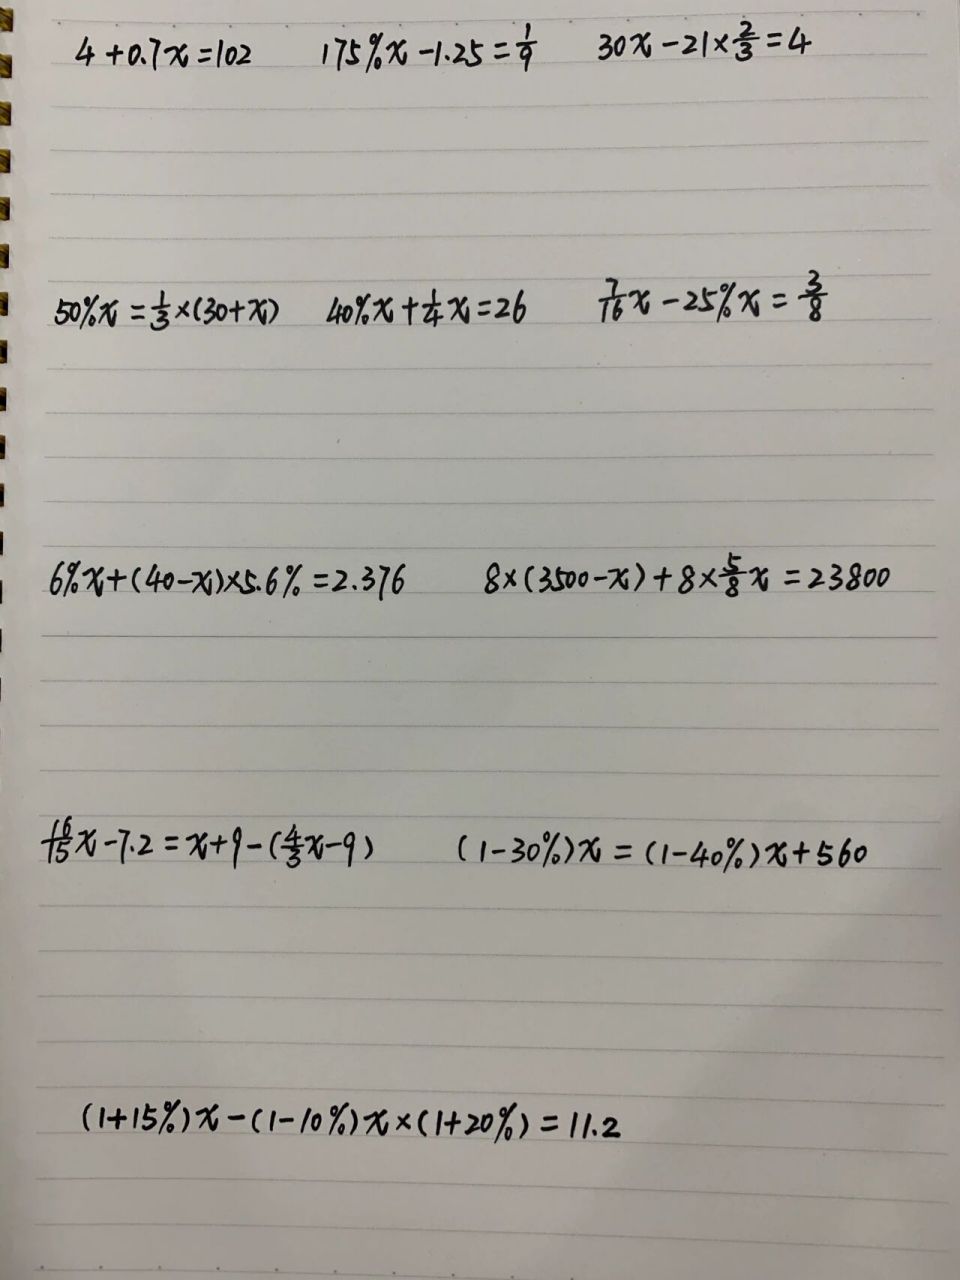 4+0.7x=102 175%x-1.25=1/9 30x-21×2/3=4
50%x=1/3×(30+x) 40%x+1/4x=26 7/16x-25%x=3/8
6%x+(40-x)×5.6%=2.376 8×(3500-x)+8×5/8x=23800
16/15x-7.2=x+9-(4/3x-9) (1-30%)x=(1-40%)x+560
(1+15%)x-(1-10%)x×(1+20%)=11.2